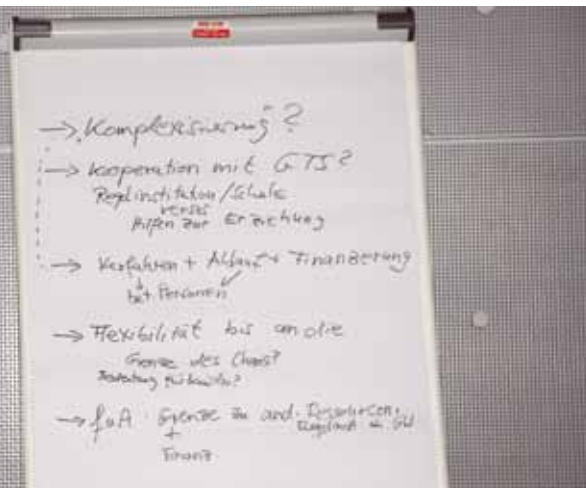 → „Komplexisierung" ?
→ Kooperation mit GTS?
Regelinstitution/Schule
versus
Hilfen zur Erziehung
→ Verfahren + Ablauf + Finanzierung
Personen
→ Flexibilität bis an die
Grenze des Chaos?
Bedeutung für
→ fuA Grenze zu and.
+
Finanz